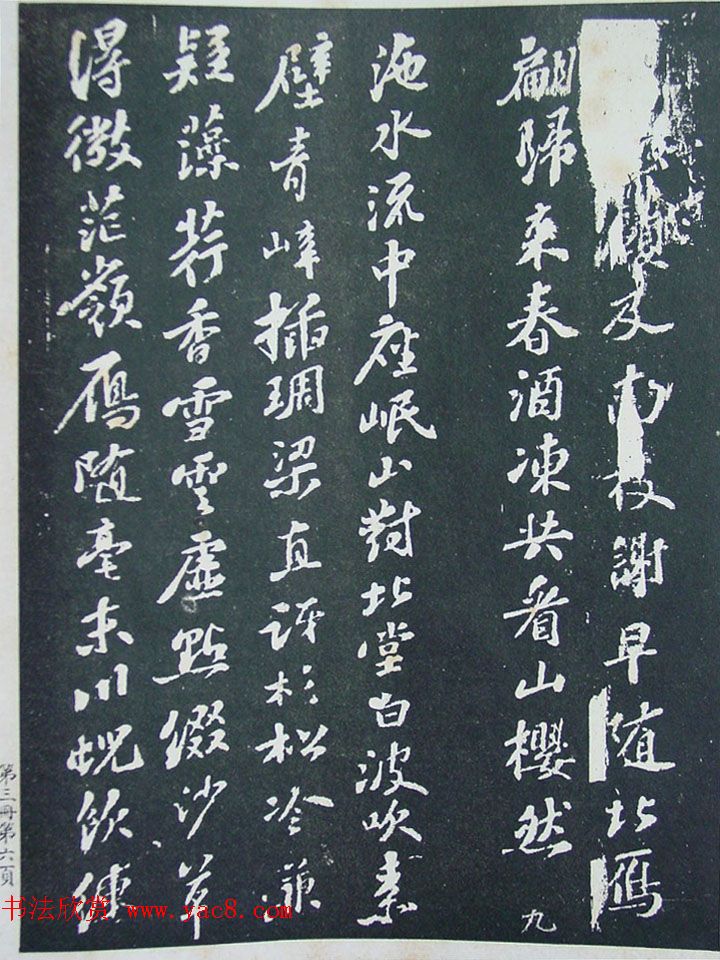 及南枝謝早随北鴈
翩歸来春酒凍共看山櫻然
沲水流中座岷山對北堂白波吹素
壁青嶂插琱梁直訝杉松冷兼
疑藻荇香雪雲虛點綴沙草
得微茫嶺鴈随毫末川蜺飲練
九
第三冊第六頁
书法欣赏 www.yac8.com